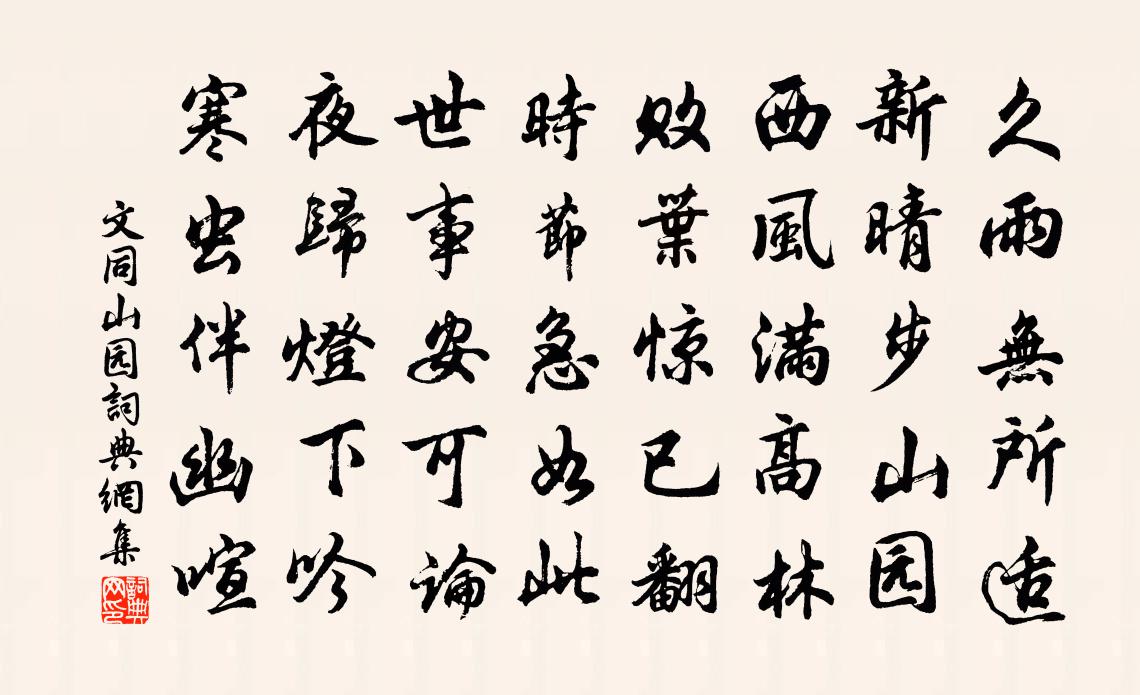 久雨無所适
新晴步山园
西風滿高林
敗葉惊已翻
時節急如此
世事安可論
夜歸燈下吟
寒虫伴幽喧
文同山园詞典網集
詞典网印